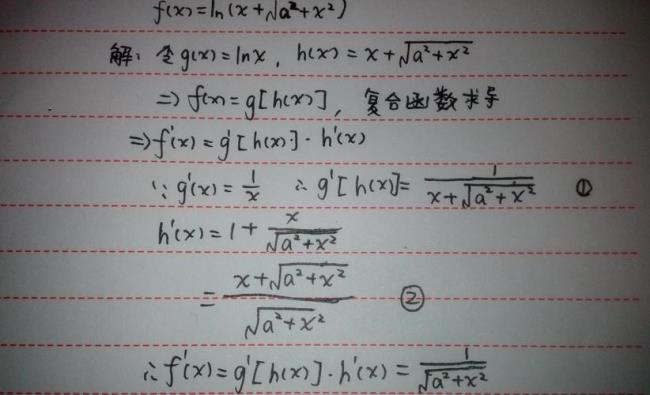 f(x)=ln(x+√(a²+x²))
解：令g(x)=lnx，h(x)=x+√(a²+x²)
=> f(x)=g[h(x)]，复合函数求导
=> f'(x)=g'[h(x)]·h'(x)
∵g'(x)=1/x ∴g'[h(x)]=1/(x+√(a²+x²)) ①
h'(x)=1+x/√(a²+x²)
=(x+√(a²+x²))/√(a²+x²) ②
∴f'(x)=g'[h(x)]·h'(x)=1/√(a²+x²)